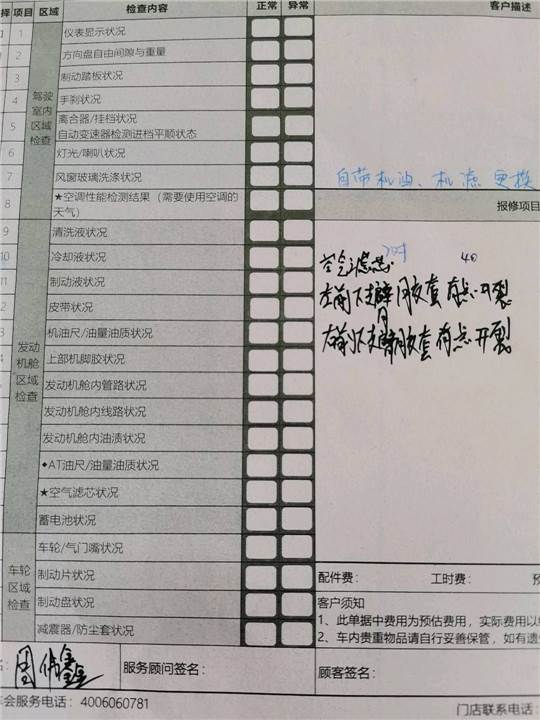 择 项目 区域 检查内容 正常 异常 客户描述
1 仪表显示状况
2 方向盘自由间隙与重量
3 制动踏板状况
4 手刹状况
驾驶室内区域检查
5 离合器/挂档状况
自动变速器检测进档平顺状态
6 灯光/喇叭状况
7 风窗玻璃洗涤状况
自带机油、机滤 更换
8 ★空调性能检测结果（需要使用空调的天气）
报修项目
9 清洗液状况
10 冷却液状况
空气滤芯 40
11 制动液状况
左前下支臂 胶套 有点开裂
皮带状况
机油尺/油量油质状况
右前下支臂 胶套 有点开裂
发动机舱区域检查
上部机脚胶状况
发动机舱内管路状况
发动机舱内线路状况
发动机舱内油渍状况
◆AT油尺/油量油质状况
★空气滤芯状况
蓄电池状况
车轮区域检查
车轮/气门嘴状况
制动片状况
配件费： 工时费： 预
制动盘状况
客户须知
1、此单据中费用为预估费用，实际费用以
减震器/防尘套状况
2、车内贵重物品请自行妥善保管，如有遗
服务顾问签名： 顾客签名：
会服务电话：4006060781 门店联系电话：